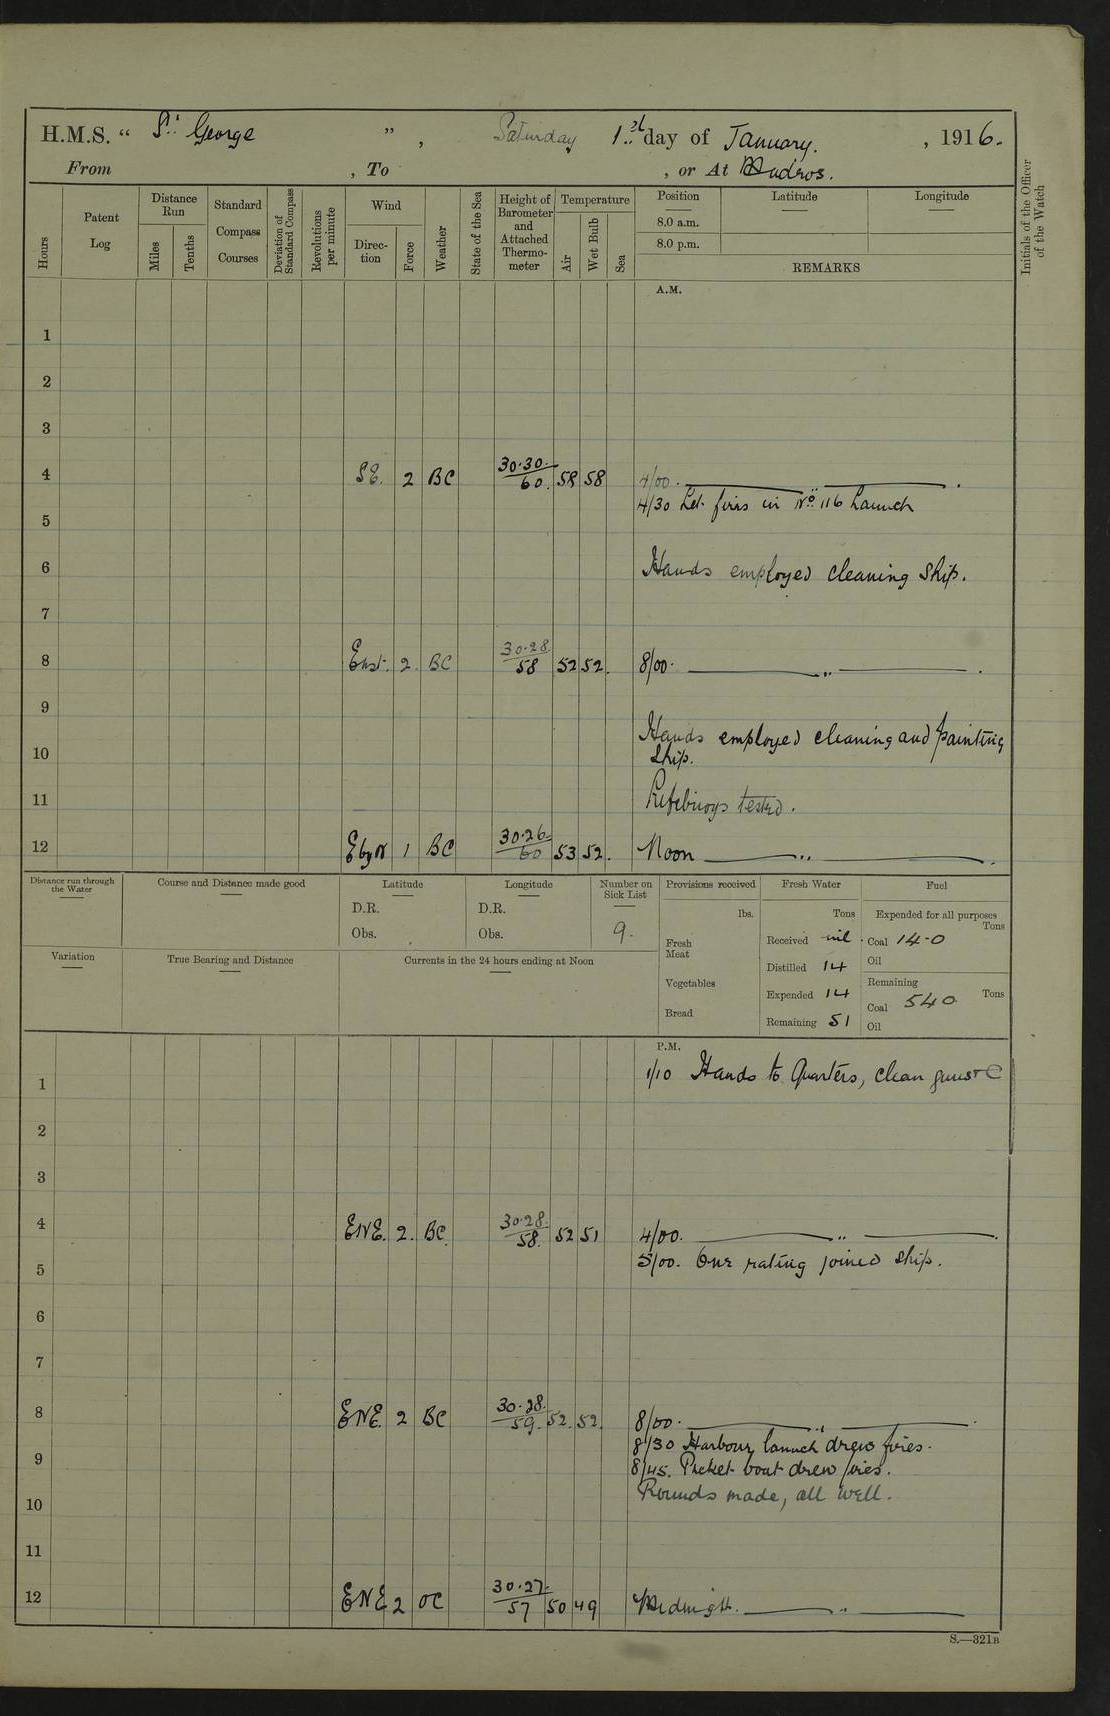 H.M.S. “ St. George ” , Saturday 1st day of January. , 1916.
From , To , or At Mudros.
Hours
Patent Log
Distance Run
Miles
Tenths
Standard Compass Courses
Deviation of Standard Compass
Revolutions per minute
Wind
Direc-tion
Force
Weather
State of the Sea
Height of Barometer and Attached Thermo-meter
Temperature
Air
Wet Bulb
Sea
Position
8.0 a.m.
8.0 p.m.
Latitude
Longitude
REMARKS
Initials of the Officer of the Watch
A.M.
1
2
3
4 SE. 2 BC 30.30 / 60. 58 58 4/00. „ .
4/30 Let fires in No. 116 Launch
5
6 Hands employed cleaning Ship.
7
8 East. 2. BC 30.28 / 58 52 52. 8/00. „ .
9
Hands employed cleaning and painting
10 Ship.
11 Lifebuoys tested.
12 EbyN 1 BC 30.26 / 60 53 52. Noon „ .
Distance run through the Water
Course and Distance made good
Latitude
D.R.
Obs.
Longitude
D.R.
Obs.
Number on Sick List
9.
Provisions received
lbs.
Fresh Meat
Vegetables
Bread
Fresh Water
Tons
Received nil.
Distilled 14
Expended 14
Remaining 51
Fuel
Expended for all purposes
Tons
Coal 14-0
Oil
Remaining
Coal 540 Tons
Oil
Variation
True Bearing and Distance
Currents in the 24 hours ending at Noon
P.M.
1 1/10 Hands to Quarters, clean guns &C
2
3
4 ENE. 2. BC. 30.28. / 58. 52 51 4/00. „ .
5/00. One rating joined ship.
5
6
7
8 ENE. 2 BC 30.28. / 59. 52. 52. 8/00. „ .
8/30 Harbour launch drew fires.
9 8/45. Picket boat drew fires.
10 Rounds made, all well.
11
12 ENE 2 OC 30.27. / 57 50 49 Midnight. „
S.—321B